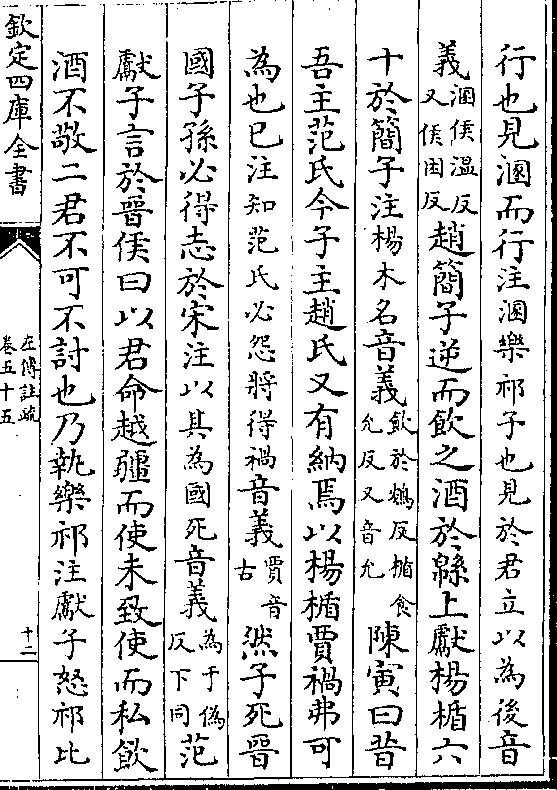 行也見溷而行注溷樂祁子也見於君立以為後音
義溷侯溫反又侯困反趙簡子逆而飲之酒於緜上獻楊楯六
十於簡子注楊木名音義飲於鴆反楯食允反又音允陳寅曰昔
吾主范氏今子主趙氏又有納焉以楊楯賈禍弗可
為也巳注知范氏必怨將得禍音義賈音古然子死晉
國子孫必得志於宋注以其為國死音義為于偽反下同范
獻子言於晉侯曰以君命越疆而使未致使而私飲
酒不敬二君不可不討也乃執樂祁注獻子怒祁比
欽定四庫全書
左傳註疏
卷五十五
十二